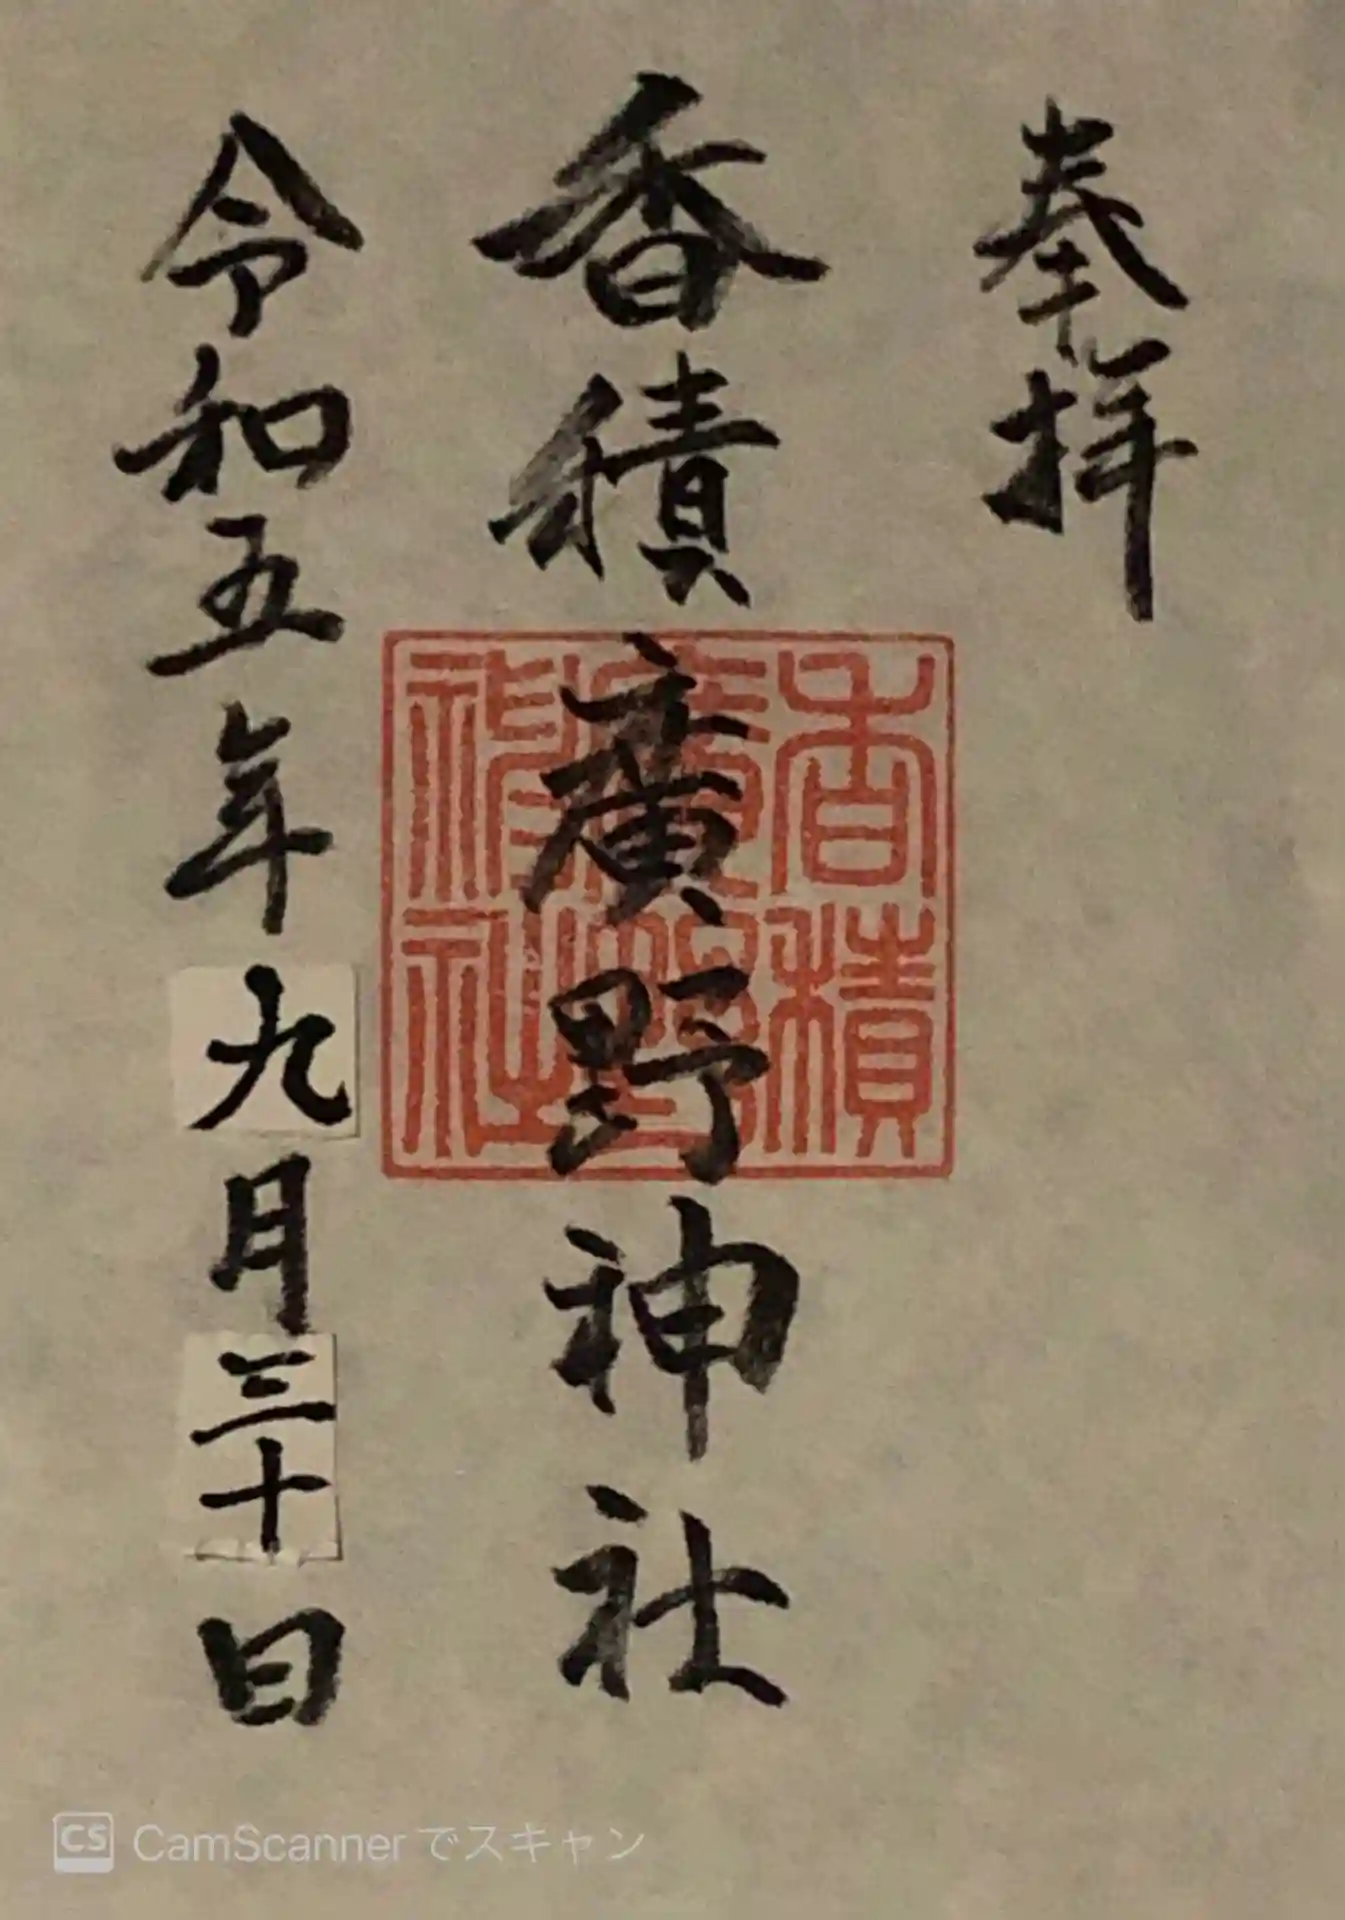 奉拝
香積廣野神社
香積
廣野
神社
令和五年九月三十日
CS CamScannerでスキャン